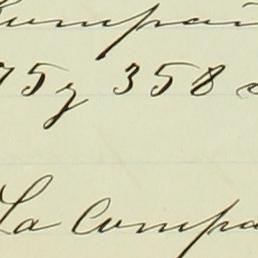 Compañ
75 y 358 
La Compa